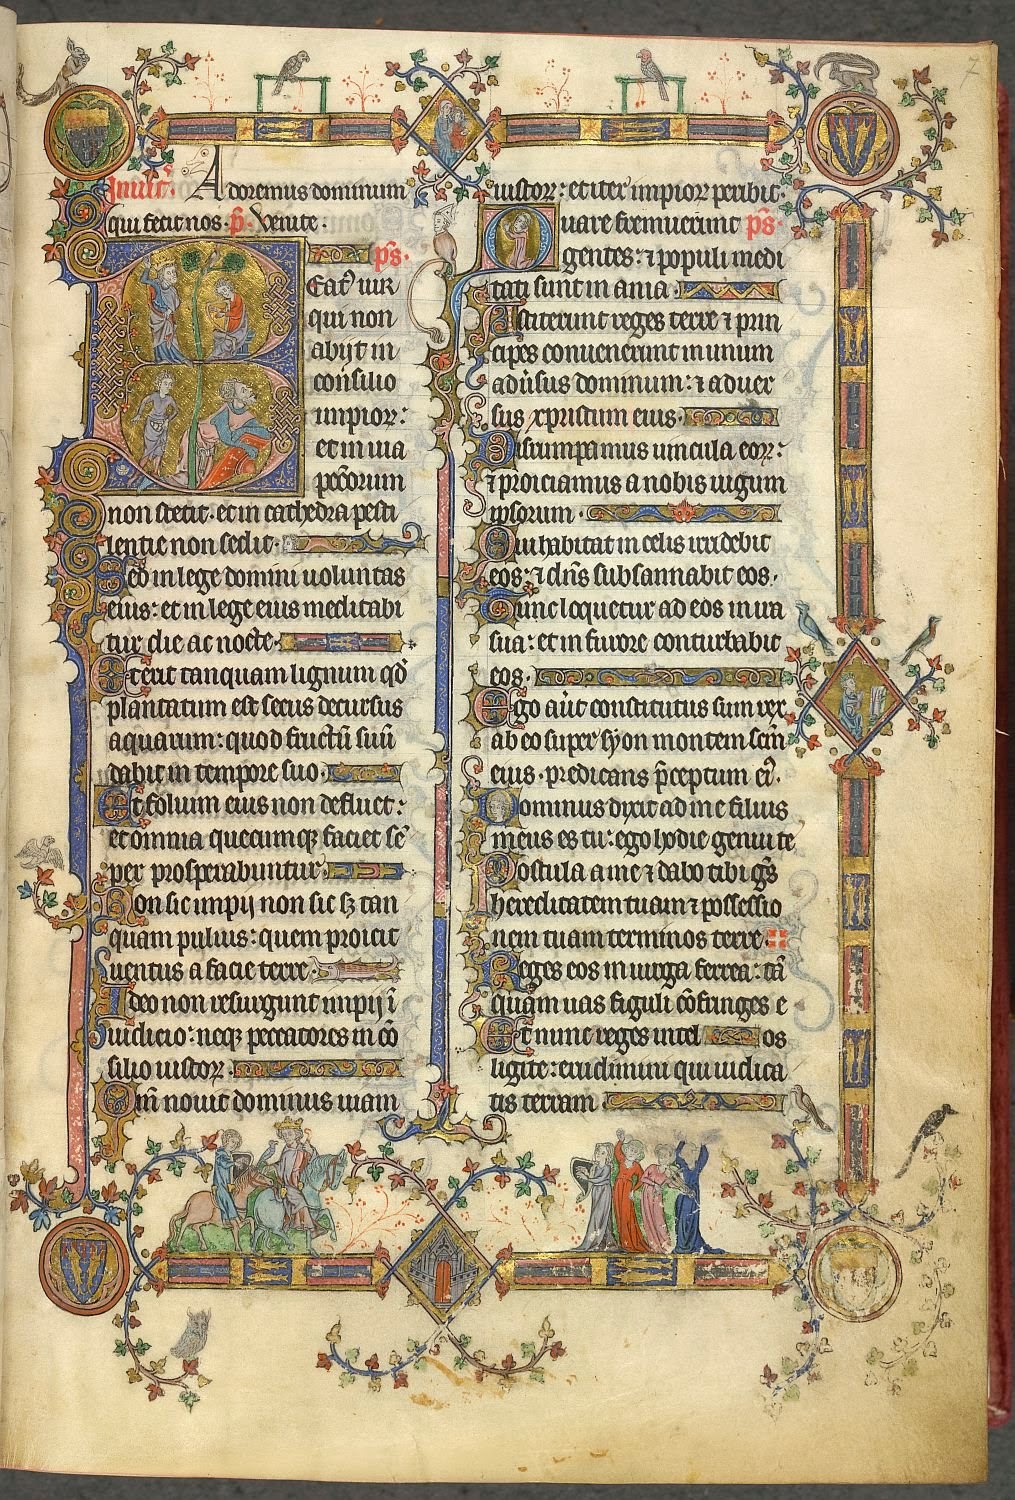 7
Inuit̃. Adoremus dominum
qui fecit nos. p̃. Venite:
p̃s.
Eat9 uir
qui non
abijt in
consilio
impior̃:
et in uia
pc̃corum
non stetit. et in cathedra pesti
lentie non sedit.
Sed in lege domini uoluntas
eius: et in lege eius meditabi
tur die ac nocte.
Et erit tanquam lignum qd̃
plantatum est secus decursus
aquarum: quod fructũ suũ
dabit in tempore suo.
Et folium eius non defluet:
et omnia quecumqꝫ faciet sẽ
per prosperabuntur.
Non sic impij non sic sꝫ tan
quam puluis: quem proicit
uentus a facie terre.
Ideo non resurgunt impij ĩ
iudicio: neqꝫ peccatores in cõ
silio iustoꝝ.
Qm̃ nouit dominus uiam
iustoꝝ: et iter impioꝝ peribit.
Quare fremuerunt p̃s.
gentes: ⁊ populi medi
tati sunt in ania.
Astiterunt reges terre ⁊ prin
cipes conuenerunt in unum
adũsus dominum: ⁊ aduer
sus xpristum eius.
Disrumpamus uincula eoꝝ:
⁊ proiciamus a nobis iugum
ipsorum.
Qui habitat in celis irridebit
eos: ⁊ dñs subsannabit eos.
Tunc loquetur ad eos in ira
sua: et in furore conturbabit
eos.
Ego aũt constitutus sum rex
ab eo super syon montem scm̃
eius. predicans p̃ceptum ei9.
Dominus dixit ad me filius
meus es tu: ego hodie genui te
Postula a me ⁊ dabo tibi gẽs
hereditatem tuam ⁊ possessio
nem tuam terminos terre
Reges eos in uirga ferrea: tã
quam uas figuli cõfringes e
Et nunc reges intel os
ligite: erudimini qui iudica
tis terram.